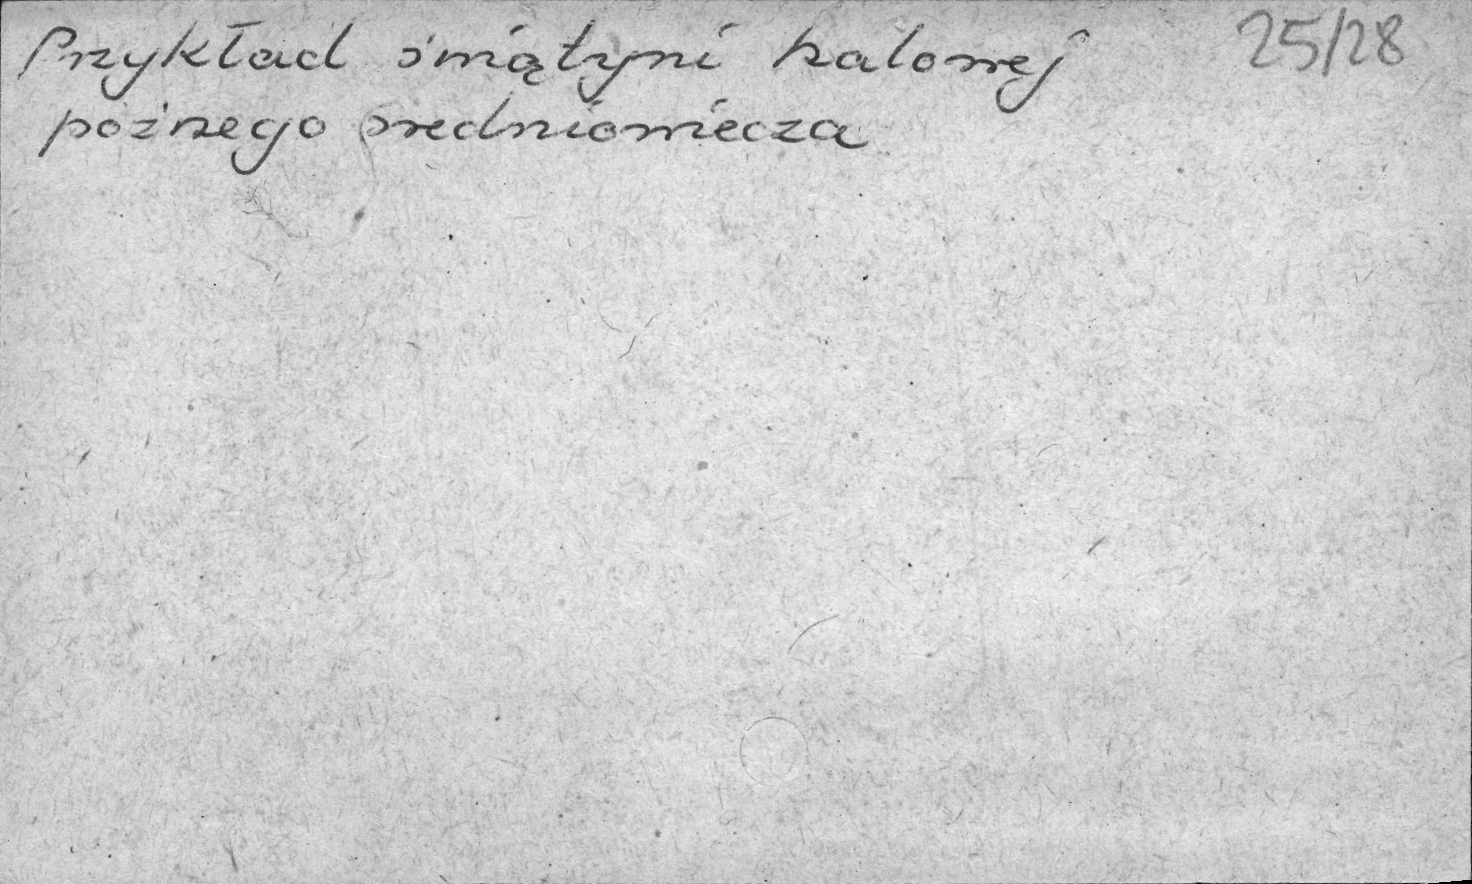 Przykład świątyni halowej 25/28
poźnego średniowiecza